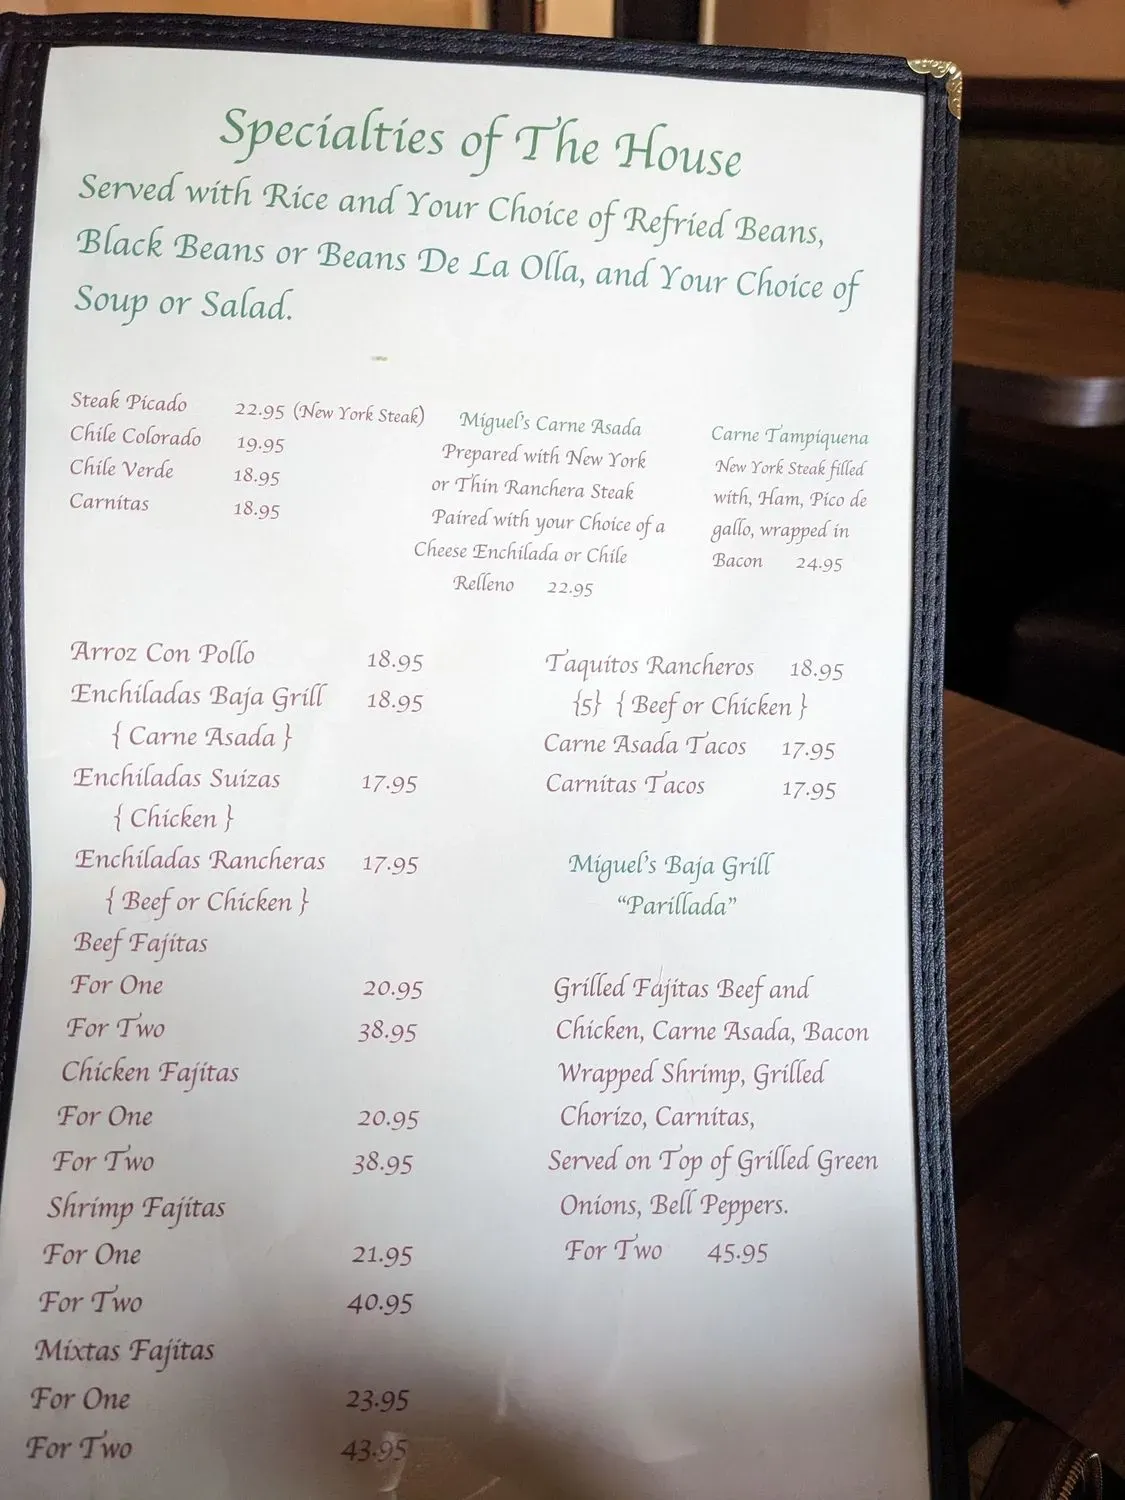 Specialties of The House
Served with Rice and Your Choice of Refried Beans,
Black Beans or Beans De La Olla, and Your Choice of
Soup or Salad.
Steak Picado 22.95 (New York Steak)
Chile Colorado 19.95
Chile Verde 18.95
Carnitas 18.95
Miguel's Carne Asada
Prepared with New York
or Thin Ranchera Steak
Paired with your Choice of a
Cheese Enchilada or Chile
Relleno 22.95
Carne Tampiquena
New York Steak filled
with, Ham, Pico de
gallo, wrapped in
Bacon 24.95
Arroz Con Pollo 18.95
Enchiladas Baja Grill 18.95
{ Carne Asada }
Enchiladas Suizas 17.95
{ Chicken }
Enchiladas Rancheras 17.95
{ Beef or Chicken }
Beef Fajitas
For One 20.95
For Two 38.95
Chicken Fajitas
For One 20.95
For Two 38.95
Shrimp Fajitas
For One 21.95
For Two 40.95
Mixtas Fajitas
For One 23.95
For Two 43.95
Taquitos Rancheros 18.95
{5} { Beef or Chicken }
Carne Asada Tacos 17.95
Carnitas Tacos 17.95
Miguel's Baja Grill
"Parillada"
Grilled Fajitas Beef and
Chicken, Carne Asada, Bacon
Wrapped Shrimp, Grilled
Chorizo, Carnitas,
Served on Top of Grilled Green
Onions, Bell Peppers.
For Two 45.95